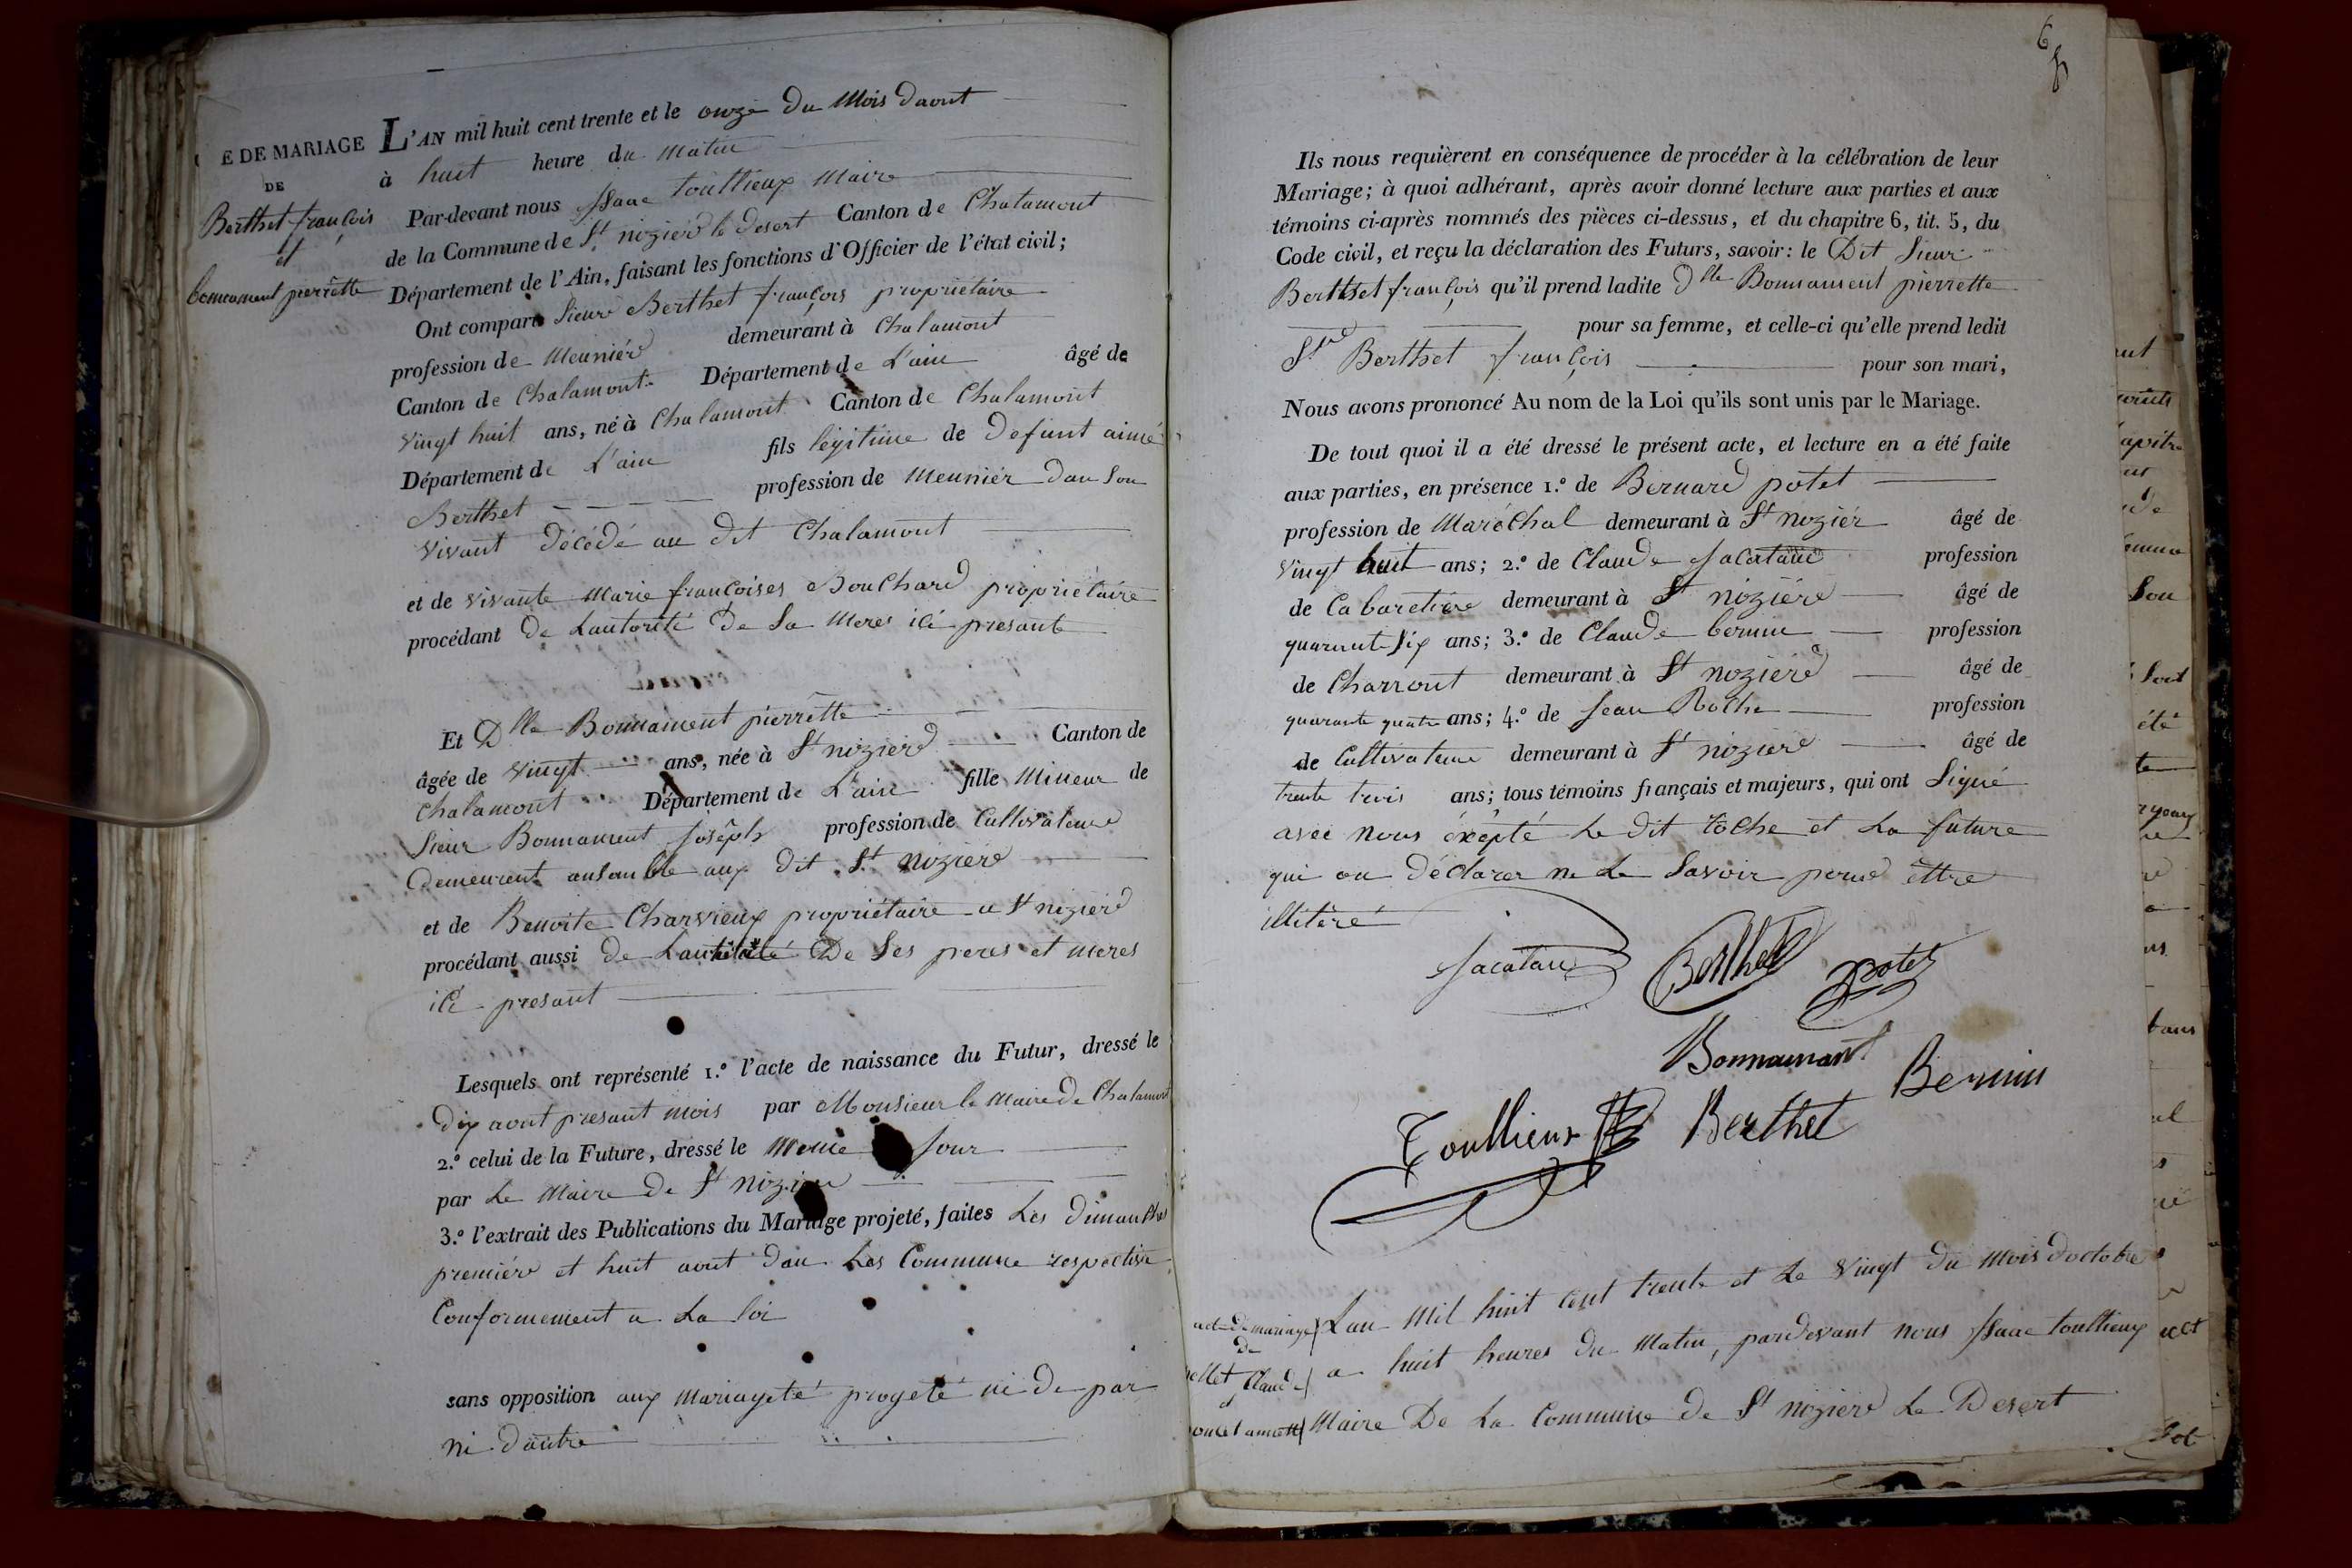 E DE MARIAGE
DE
Berthet françois
et
bonnament pierrette
L'AN mil huit cent trente et le onze du Mois daout
à huit heure du matin
Par-devant nous Isaac toullieux Maire
de la Commune de St nizier le desert Canton de Chalamont
Département de l'Ain, faisant les fonctions d'Officier de l'état civil;
Ont comparu Sieur Berthet françois propriétaire
profession de Meunier demeurant à Chalamont
Canton de Chalamont Département de L'ain âgé de
vingt huit ans, né à Chalamont Canton de Chalamont
Département de L'ain fils légitime de defunt aimé
Berthet profession de Meunier dan Son
vivant décédé au dit Chalamont
et de vivante Marie françoises Bouchard propriétaire
procédant de Lautorité de Sa Mere ici presante
Et Dlle Bonnament pierrette
âgée de vingt ans, née à St nizier Canton de
Chalamont Département de L'ain fille Mineur de
Sieur Bonnament Joseph profession de Cultivateur
demeurent ansamble aux dit St nizier
et de Benoite Charvieux propriétaire a St nizier
procédant aussi de De Ses peres et meres
ici presant
Lesquels ont représenté 1.° l'acte de naissance du Futur, dressé le
dix aout presant mois par Monsieur le Maire de Chalamont
2.° celui de la Future, dressé le Meme Jour
par Le Maire de St nizier
3.° l'extrait des Publications du Mariage projeté, faites Les dimanches
premier et huit aout dan Les Commune respective
Conformement a La loi
sans opposition aux Mariageté progeté ni de par
ni dautre
6
Ils nous requièrent en conséquence de procéder à la célébration de leur
Mariage; à quoi adhérant, après avoir donné lecture aux parties et aux
témoins ci-après nommés des pièces ci-dessus, et du chapitre 6, tit. 5, du
Code civil, et reçu la déclaration des Futurs, savoir: le Dit Sieur
Berthet françois qu'il prend ladite Dlle Bonnament pierrette
pour sa femme, et celle-ci qu'elle prend ledit
Sr Berthet françois pour son mari,
Nous avons prononcé Au nom de la Loi qu'ils sont unis par le Mariage.
De tout quoi il a été dressé le présent acte, et lecture en a été faite
aux parties, en présence 1.° de Bernard potet
profession de Maréchal demeurant à St nizier âgé de
vingt huit ans; 2.° de Claude Jacataud profession
de Cabaretier demeurant à St nizier âgé de
quarant Six ans; 3.° de Claude bernin profession
de Charront demeurant à St nizier âgé de
quarante quatre ans; 4.° de Jean Roche profession
de Cultivateur demeurant à St nizier âgé de
trente trois ans; tous témoins français et majeurs, qui ont Signé
avec nous éxepté Le dit roche et La future
qui on déclarer ne Le Savoir pour ettre
illitéré
Jacataud Berthet potet
Bonnamant
Bernin
Toullieux Berthet
act de mariage
de
Claude
et
Lan Mil huit cent trente et Le vingt du Mois doctobre
a huit heures du Matin, pardevant nous Isaac toullieux
Maire De La Commune de St nizier Le Desert